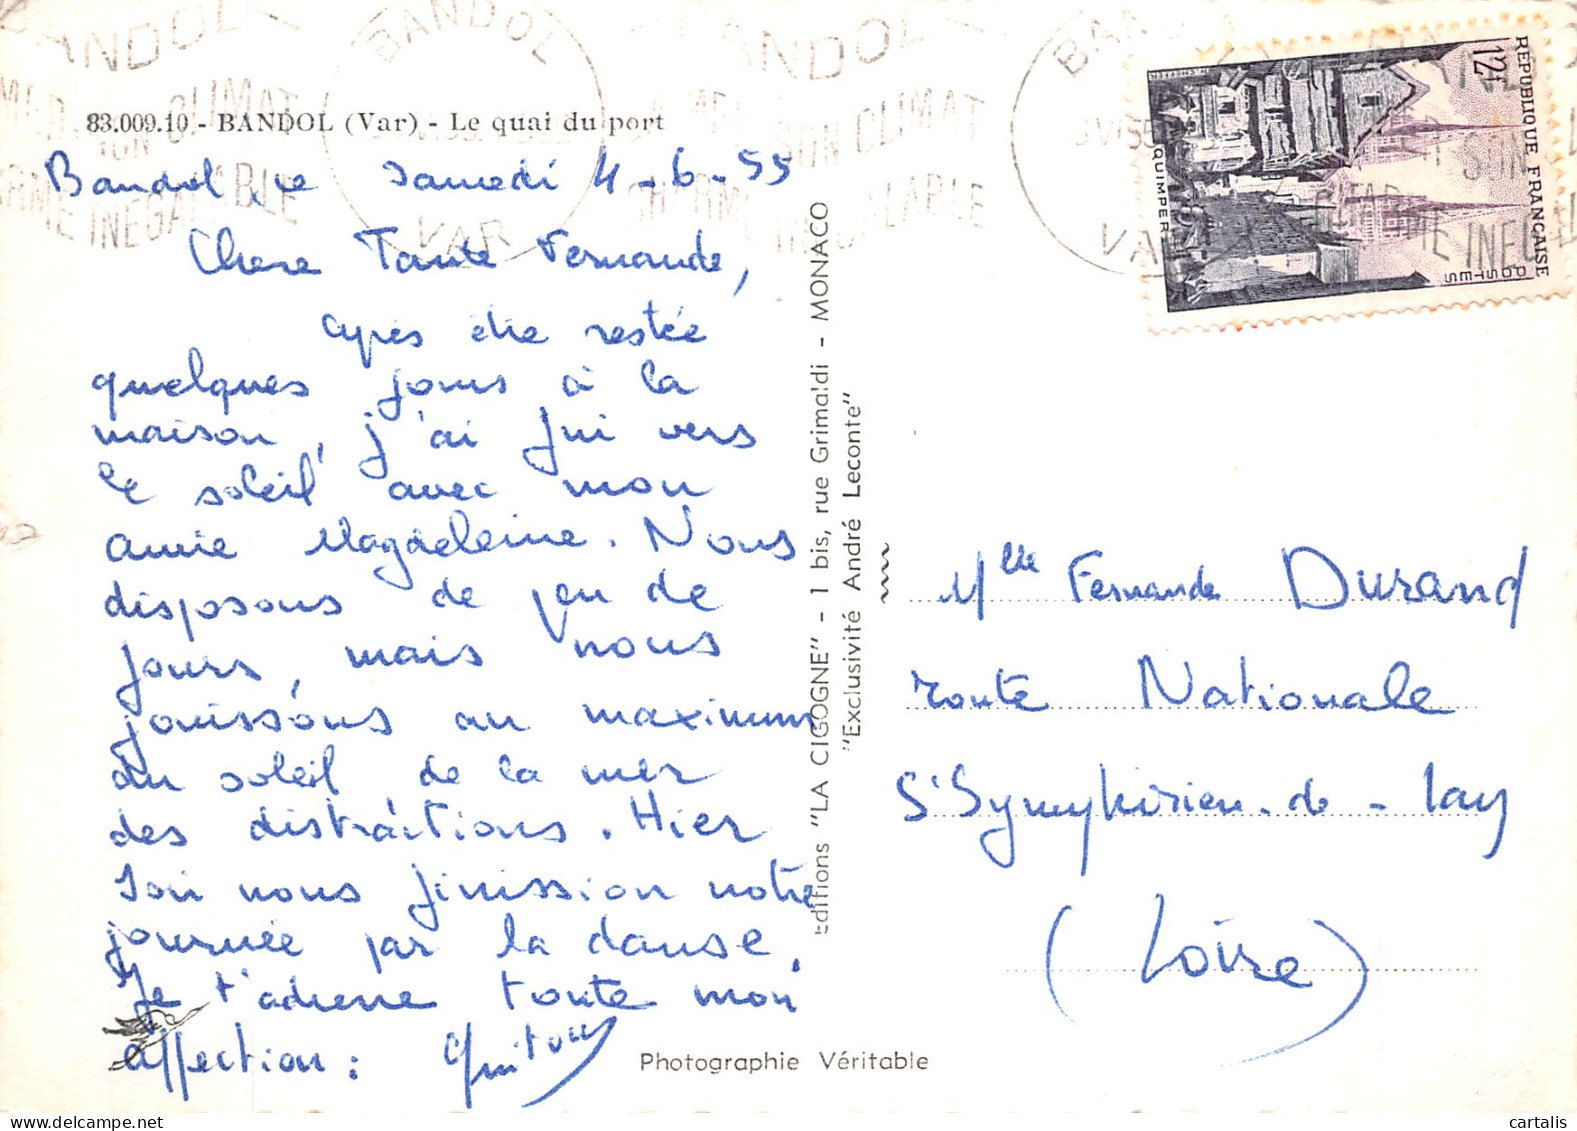 BANDOL
SON CLIMAT
CHARME INEGALABLE
BANDOL
VAR
BANDOL
SON CLIMAT
CHARME INEGALABLE
BANDOL
VAR
83.009.10 - BANDOL (Var) - Le quai du port
Bandol, le Samedi 4-6-55
Chere Tante Fernande,
après être restée
quelques jours à la
maison, j'ai fui vers
le soleil avec mon
amie Magdeleine. Nous
disposons de peu de
jours, mais nous
jouissons au maximum
du soleil de la mer
des distractions. Hier
soir nous finission notre
journée par la danse.
Je t'adresse toute mon
affection :
Editions "LA CIGOGNE" - 1 bis, rue Grimaldi - MONACO
"Exclusivité André Leconte"
Photographie Véritable
REPUBLIQUE FRANÇAISE
12f
QUIMPER
POSTES
Mlle Fernande Durand
route Nationale
St Symphorien-de-Lay
(Loire)
cartalis